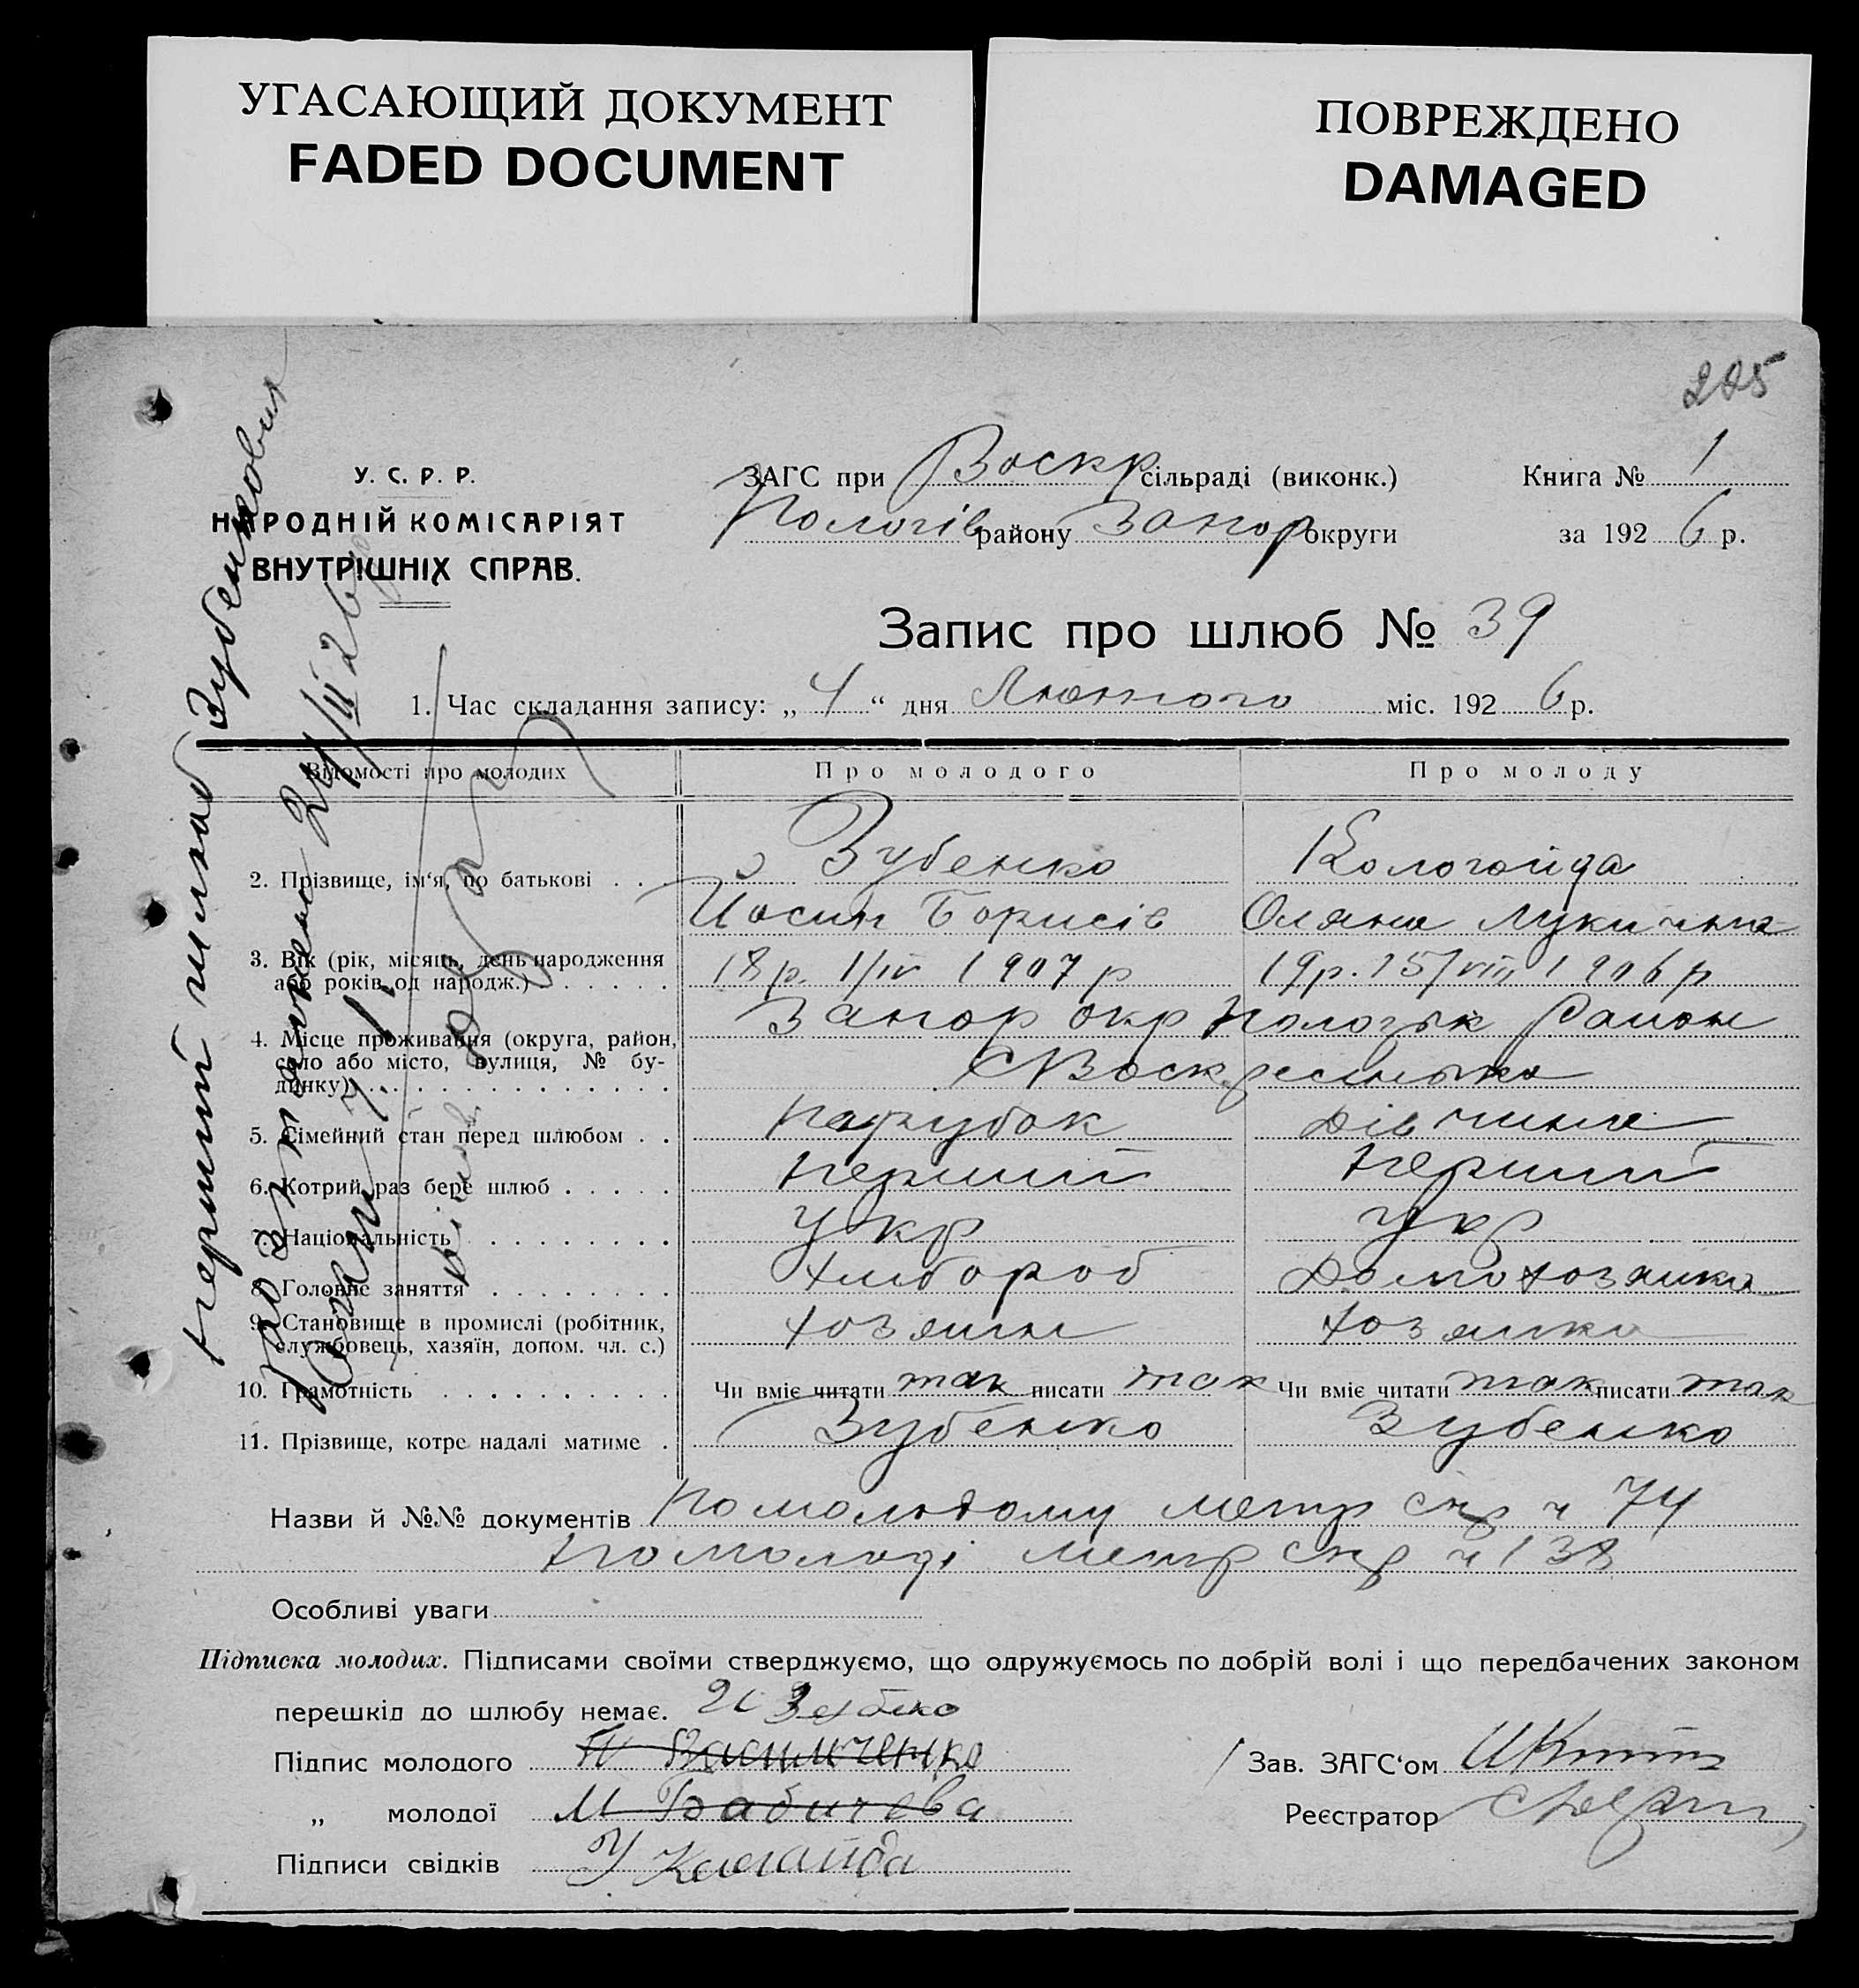 УГАСАЮЩИЙ ДОКУМЕНТ
FADED DOCUMENT
ПОВРЕЖДЕНО
DAMAGED
У. С. Р. Р.
НАРОДНІЙ КОМІСАРІЯТ
ВНУТРІШНІХ СПРАВ.
ЗАГС при Воскр сільраді (виконк.) Книга № 1
Пологів району Запор округи за 1926 р.
Запис про шлюб № 39
1. Час складання запису: „ 4 “ дня Лютого міс. 1926 р.
Відомості про молодих Про молодого Про молоду
2. Прізвище, ім‘я, по батькові . . Зубенко Кологойда
Иосип Борисів Оляна Лукична
3. Вік (рік, місяць, день народження 18р. 1/IV 1907 р 19р. 15/VIII 1906 р
або років од народж.) . . . . . .
4. Місце проживання (округа, район, Запор окр Пологськ Район
село або місто, вулиця, № бу- С Воскресенька
динку) . . . . . . . . . . . .
5. Сімейний стан перед шлюбом . . Парубок Дівчина
6. Котрий раз бере шлюб . . . . . Перший Перший
7. Національність . . . . . . . . Укр Укр
8. Головне заняття . . . . . . . . Хлібороб Домохозяика
9. Становище в промислі (робітник, Хозяин Хозяика
службовець, хазяїн, допом. чл. с.)
10. Грамотність . . . . . . . . . . Чи вміє читати так писати так Чи вміє читати так писати так
11. Прізвище, котре надалі матиме . Зубенко Зубенко
Назви й №№ документів По молодому метр спр ч 74
По молоді метр спр ч 138
Особливі уваги
Підписка молодих. Підписами своїми стверджуємо, що одружуємось по добрій волі і що передбачених законом
перешкід до шлюбу немає.
Підпис молодого Василиченко
„ молодої М Бабичева
Підписи свідків У Калагайда
Зав. ЗАГС‘ом
Реєстратор
Перший шлюб Зубенковия
24/II 26